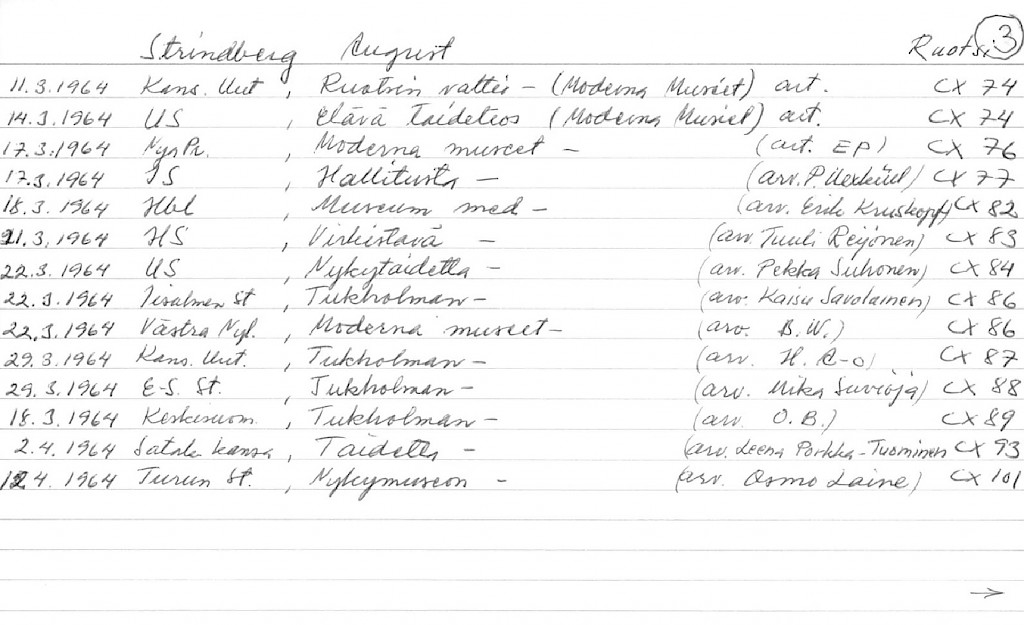 Strindberg August Ruotsi 3
11.3.1964 Kans. Uut , Ruotsin valtei- (Moderna Muséet) art. CX 74
14.3.1964 US , Elävä taideteos (Moderna Muséet) art. CX 74
17.3.1964 Nya Pr. , Moderna museet - (art. EP) CX 76
17.3.1964 IS , Hallitusta - (arv. P. Uexküll) CX 77
18.3.1964 Hbl , Museum med - (arv. Erik Kruskopf) CX 82
21.3.1964 HS , Virkistävä - (arv. Tuuli Reijonen) CX 83
22.3.1964 US , Nykytaidetta - (arv. Pekka Suhonen) CX 84
22.3.1964 Iisalmen St , Tukholman - (arv. Kaisu Savolainen) CX 86
22.3.1964 Västra Nyl. , Moderna museet - (arv. B.W.) CX 86
29.3.1964 Kans. Uut. , Tukholman - (arv. H. A-o) CX 87
29.3.1964 E-S. St. , Tukholman - (arv. Mika Suvioja) CX 88
18.3.1964 Keskisuom. , Tukholman - (arv. O.B.) CX 89
2.4.1964 Satak. kansa , Taidetta - (arv. Leena Porkka-Tuominen CX 93
12.4.1964 Turun St. , Nykymuseon - (arv. Osmo Laine) CX 101
→